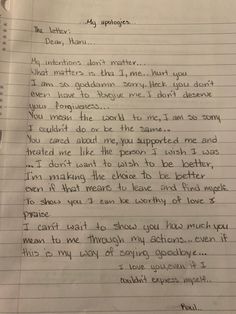 My apologies
The letter:
Dear, Hanu...
My intentions don't matter...
What matters is tha I, me... hurt you
I am so goddamn sorry. Heck you don't
even have to forgive me. I don't deserve
your forgiveness...
You mean the world to me, I am so sorry
I couldn't do or be the same...
You cared about me, you supported me and
treated me like the person I wish I was
... I don't want to wish to be better,
I'm making the choice to be better
even if that means to leave and find myself.
To show you I can be worthy of love &
praise.
I can't wait to show you how much you
mean to me through my actions... even if
this is my way of saying goodbye...
I love you, even if I
couldn't express myself..